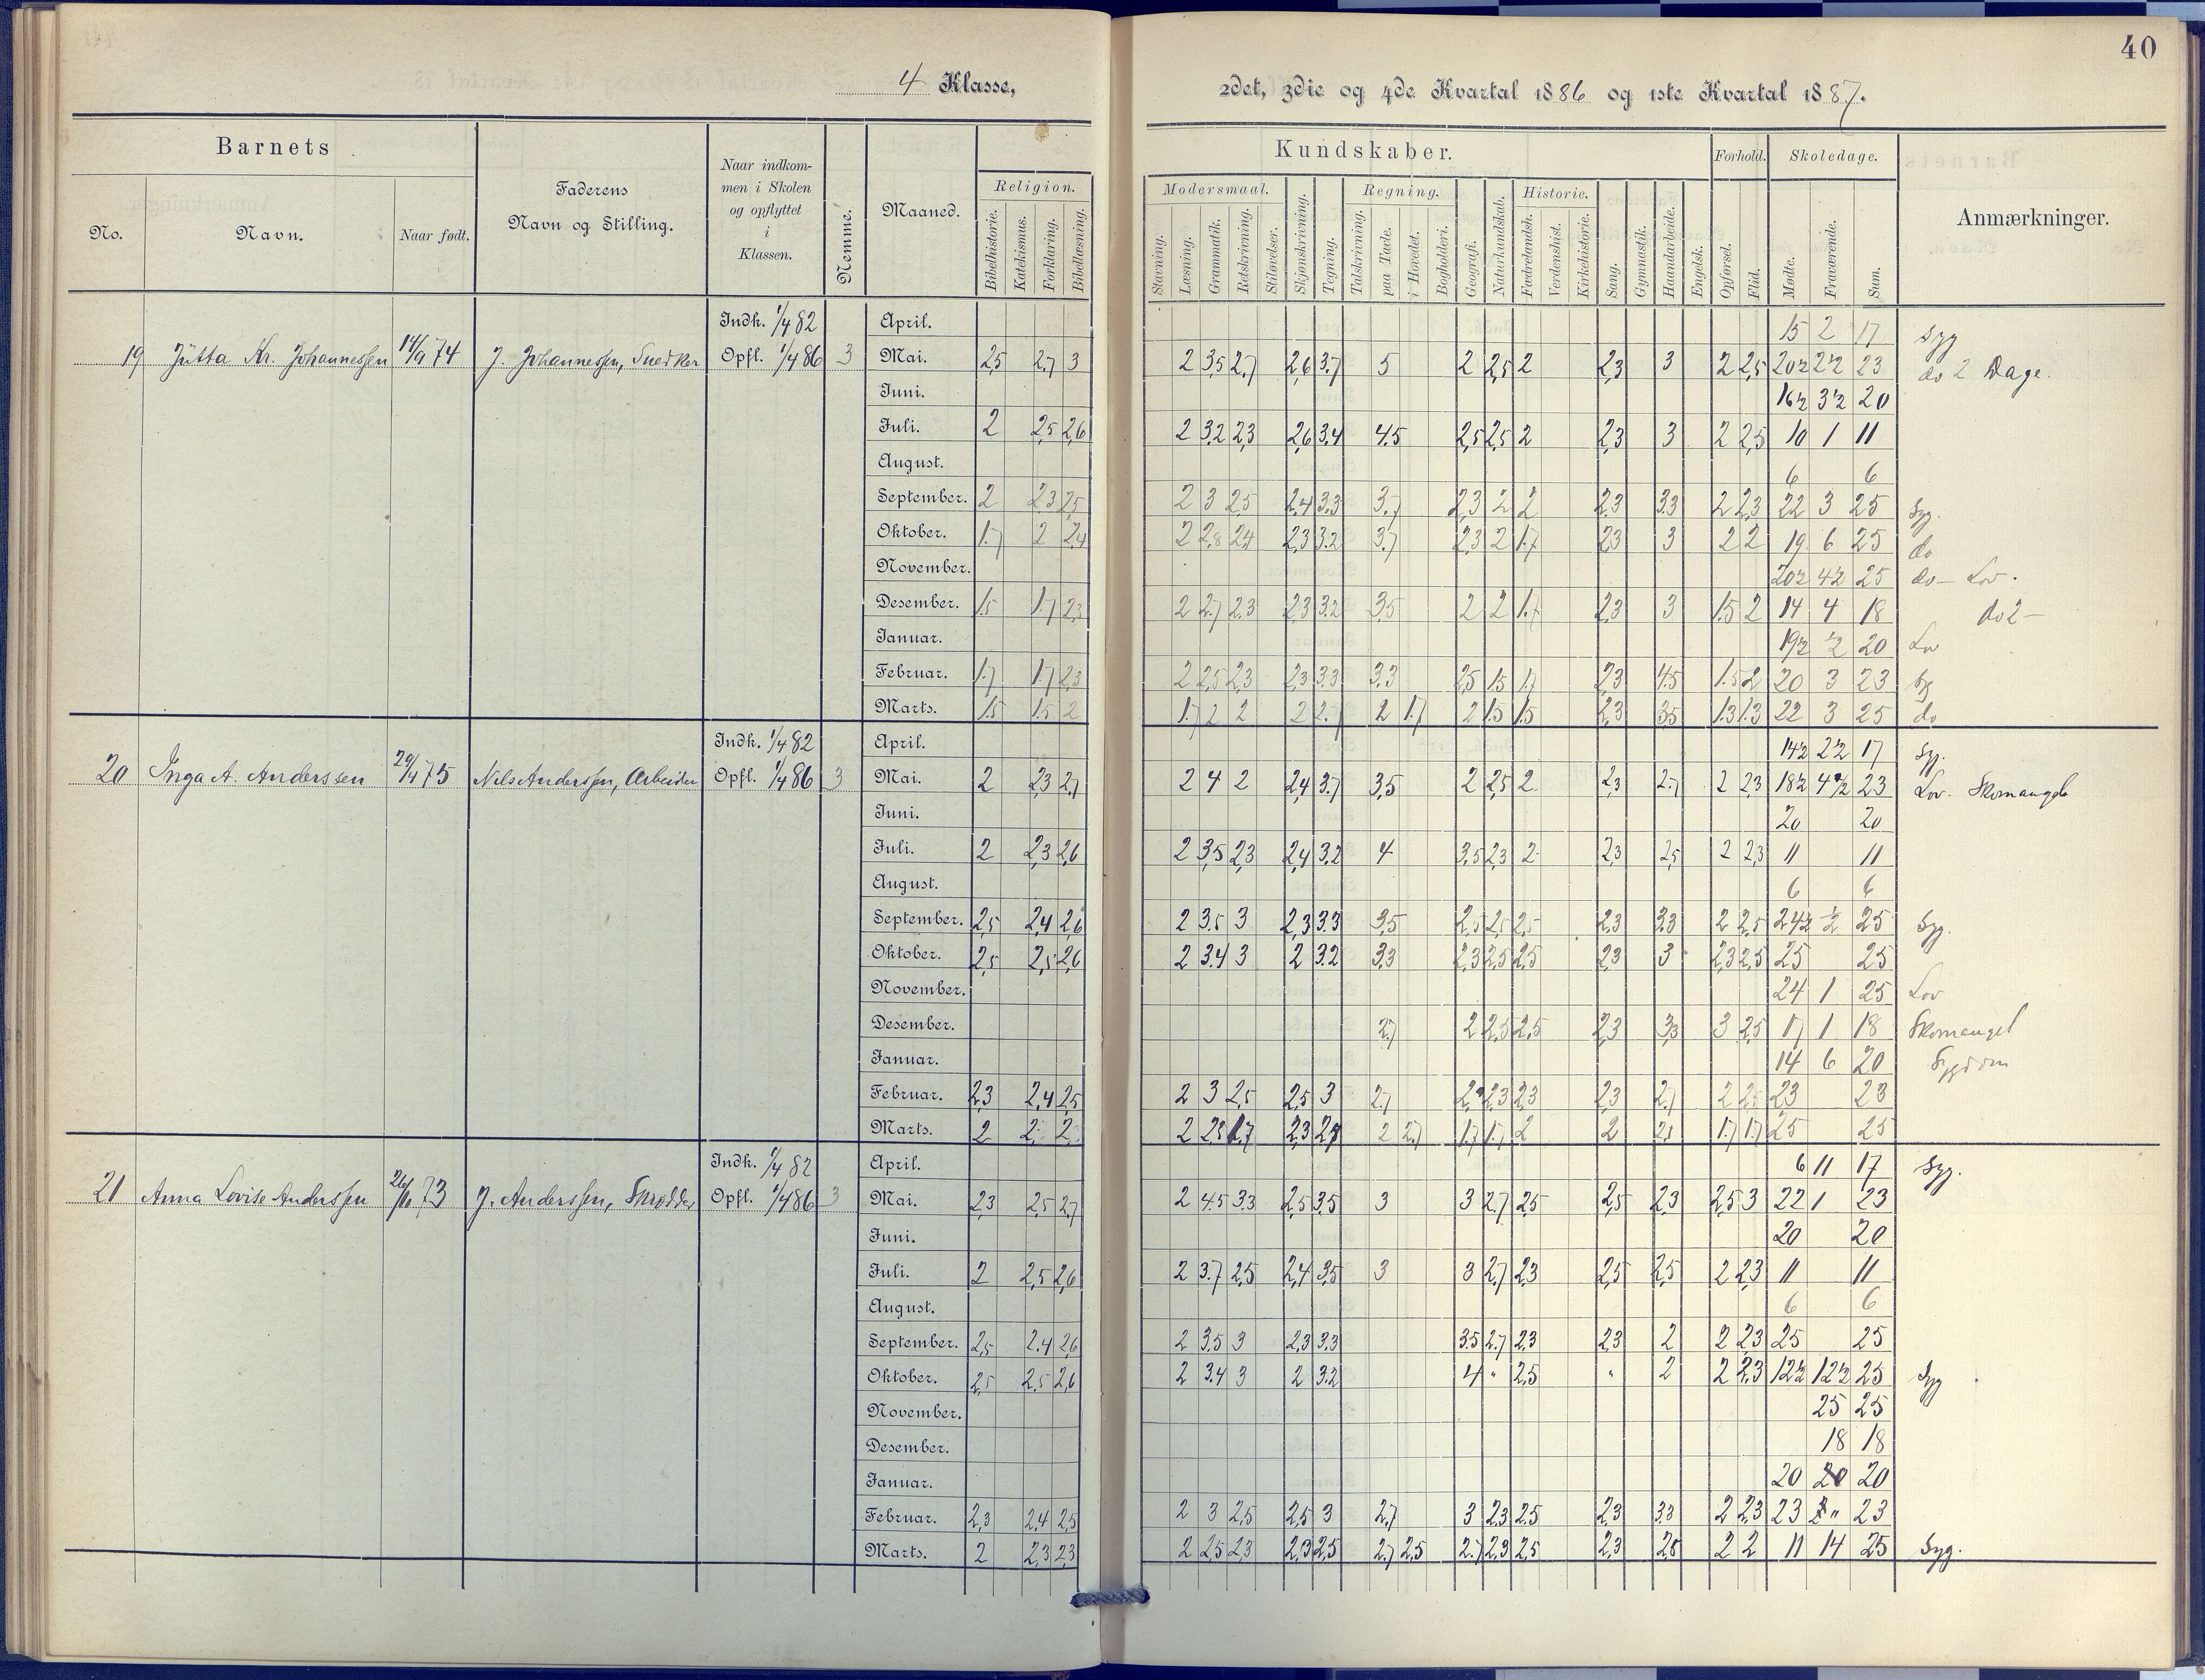 40
4 Klasse, 2det, 3die og 4de Kvartal 1886 og 1ste Kvartal 1887.
Barnets
Faderens Navn og Stilling.
Naar indkommen i Skolen og opflyttet i Klassen.
Nemme.
Maaned.
Kundskaber.
Forhold.
Skoledage.
Anmærkninger.
No. Navn. Naar født.
Religion. Modersmaal. Regning. Historie.
Bibelhistorie. Katekismus. Forklaring. Bibellæsning.
Stavning. Læsning. Grammatik. Retskrivning. Stiløvelser. Skjønskrivning. Tegning. Talskrivning. paa Tavle. i Hovedet. Bogholderi. Geografi. Naturkundskab. Fædrelandsh. Verdenshist. Kirkehistorie. Sang. Gymnastik. Haandarbeide. Engelsk. Opførsel. Flid. Mødte. Fraværende. Sum.
Indk. 1/4 82 April. 15 2 17 Syg
19 Jutta Kr. Johannessen 14/9 74 J. Johannessen, Snedker Opfl. 1/4 86 3 Mai. 2,5 2,7 3 2 3,5 2,7 2,6 3,7 5 2 2,5 2 2,3 3 2 2,5 20½ 2½ 23 do 2 Dage.
Juni. 16½ 3½ 20
Juli. 2 2,5 2,6 2 3,2 2,3 2,6 3,4 4.5 2,5 2,5 2 2,3 3 2 2,5 10 1 11
August. 6 6
September. 2 2,3 2,5 2 3 2,5 2,4 3.3 3.7 2,3 2 2 2,3 3,3 2 2,3 22 3 25 Syg.
Oktober. 1.7 2 2,4 2 2,8 2,4 2,3 3.2 3,7 2,3 2 1.7 2,3 3 2 2 19 6 25 do
November. 20½ 4½ 25 do - Lov.
Desember. 1.5 1.7 2,3 2 2.7 2.3 2,3 3.2 3,5 2 2 1.7 2,3 3 1.5 2 14 4 18 do 2 -
Januar. 19½ ½ 20 Lov
Februar. 1.7 1.7 2,3 2 2,5 2,3 2,3 3.3 3.3 2,5 1.5 1.7 2,3 4.5 1.5 2 20 3 23 Syg
Marts. 1.5 1.5 2 1.7 2 2 2 2.7 2 1.7 2 1.5 1.5 2,3 3.5 1.3 1.3 22 3 25 do
Indk. 1/4 82 April. 14½ 2½ 17 Syg.
20 Inga A. Anderssen 29/4 75 Nils Anderssen, Arbeider Opfl. 1/4 86 3 Mai. 2 2,3 2,7 2 4 2 2,4 3.7 3,5 2 2,5 2 2,3 2.7 2 2,3 18½ 4½ 23 Lov. Skomangel
Juni. 20 20
Juli. 2 2,3 2,6 2 3,5 2,3 2,4 3,2 4 3,5 2,3 2 2,3 2,5 2 2,3 11 11
August. 6 6
September. 2,5 2,4 2,6 2 3.5 3 2,3 3.3 3,5 2,5 2,5 2,5 2,3 3,3 2 2,5 24½ ½ 25 Syg.
Oktober. 2,5 2,5 2,6 2 3.4 3 2 3.2 3,3 2,3 2,5 2,5 2,3 3 2,3 2,5 25 25
November. 24 1 25 Lov
Desember. 2.7 2 2,5 2,5 2,3 3,3 3 2,5 17 1 18 Skomangel
Januar. 14 6 20 Sygdom
Februar. 2,3 2,4 2,5 2 3 2,5 2,5 3 2.7 2 2,3 2,3 2,3 2,7 2 2,5 23 23
Marts. 2 2 2 2 1,7 2,3 2 2.7 1.7 1.7 2 2 1.7 1.7 25 25
Indk. 1/4 82 April. 6 11 17 Syg.
21 Anna Lovise Anderssen 26/11 73 J. Anderssen, Skrædder Opfl. 1/4 86 3 Mai. 2,3 2,5 2,7 2 4.5 3.3 2,5 3,5 3 3 2.7 2,5 2,5 2,3 2,5 3 22 1 23
Juni. 20 20
Juli. 2 2,5 2,6 2 3.7 2,5 2,4 3,5 3 3 2.7 2,3 2,5 2,5 2 2,3 11 11
August. 6 6
September. 2,5 2.4 2,6 2 3.5 3 2,3 3.3 3.5 2.7 2,3 2,3 2 2 2,3 25 25
Oktober. 2,5 2,5 2,6 2 3.4 3 2 3.2 4 " 2,5 " 2 2 2,3 12½ 12½ 25 Syg
November. 25 25
Desember. 18 18
Januar. 20 20 20
Februar. 2,3 2,4 2,5 2 3 2,5 2,5 3 2.7 3 2,3 2,5 2,3 3,3 2 2,3 23 " 23
Marts. 2 2,3 2,3 2 2,5 2,3 2,3 2,5 2.7 2,5 2.7 2,3 2,5 2,3 2,8 2 2 11 14 25 Syg.